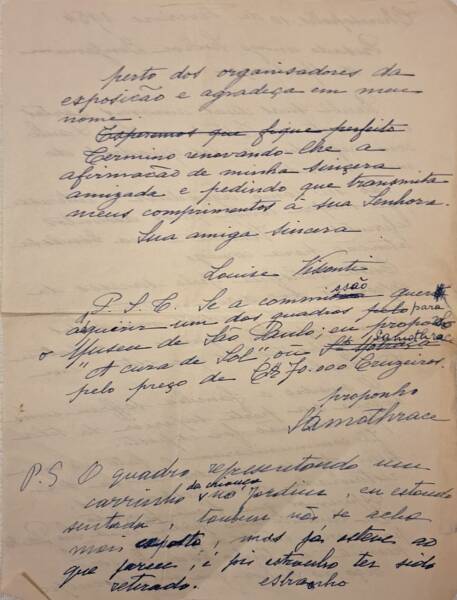 perto dos organisadores da
exposição e agradeça em meu
nome.
Esperemos que fique perfeito
Termino renovando-lhe a
afirmacão de minha sinçera
amizada e pedindo que transmita
meus comprimentos á sua Senhora.
Sua amiga sincera
Louise Visconti
P.S.C. Se a commissão quer
aquirir um dos quadros pelo para
o Museu de São Paulo; eu proponho
"A cura de Sol", ou Samothrace
pelo preço de Cr$ 70.000 Cruzeiros.
proponho
Samothrace
P.S O quadro representando um
carrinho de criança no jardim, eu estando
sentada, tambem não se acha
mais exposto, mas já esteve ao
que parece; é pois estranho ter sido
retirado. estranho